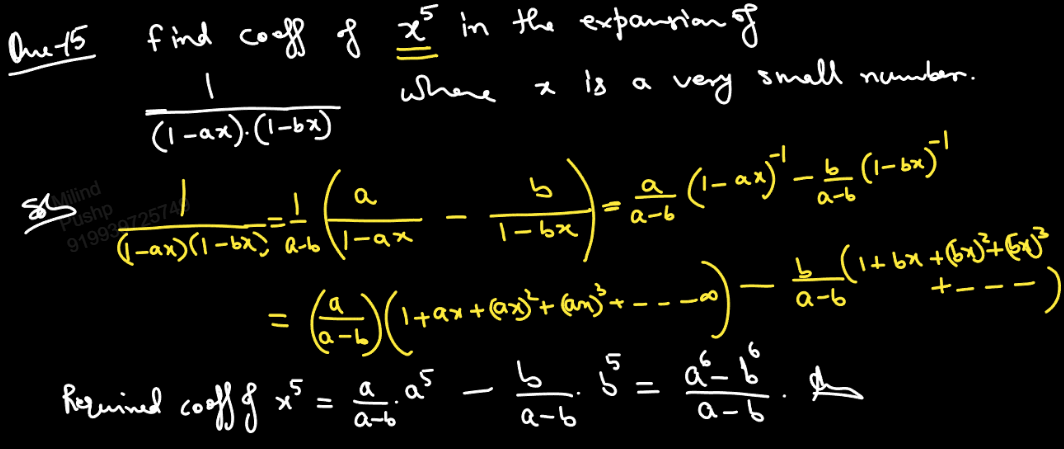 Que-15 find coeff of x⁵ in the expansion of
1/((1-ax).(1-bx)) where x is a very small number.
Milind
Pushp
9199
725740
Sol 1/((1-ax)(1-bx)) = 1/(a-b) (a/(1-ax) - b/(1-bx)) = a/(a-b) (1-ax)⁻¹ - b/(a-b) (1-bx)⁻¹
= (a/(a-b)) (1+ax+(ax)²+(ax)³+----∞) - b/(a-b) (1+bx+(bx)²+(bx)³+----)
Required coeff of x⁵ = a/(a-b) . a⁵ - b/(a-b) . b⁵ = (a⁶-b⁶)/(a-b) . Ans